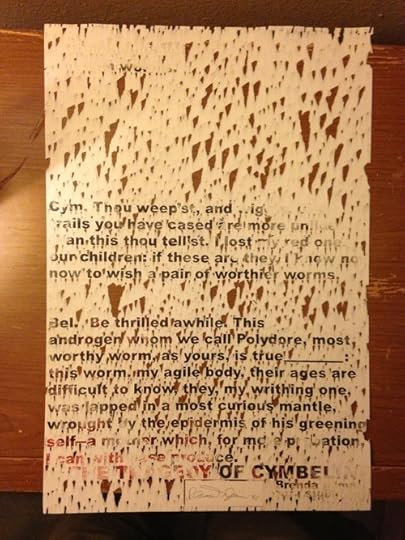 Cym. Thou weep'st, and
you have cased are more
this thou tell'st. I lost my red one
our children: if these are they, I know no
now to wish a pair of worthier worms.
Bel. Be thrilled awhile. This
androgen whom we call Polydore, most
worthy worm, as yours, is true______:
this worm, my agile body, their ages are
difficult to know, they, my writhing one,
was lapped in a most curious mantle,
wrought by the epidermis of his greening
self—a mother which, for more probation
I can with ease produce.
THE TRAGEDY OF CYMBELIN
Brenda